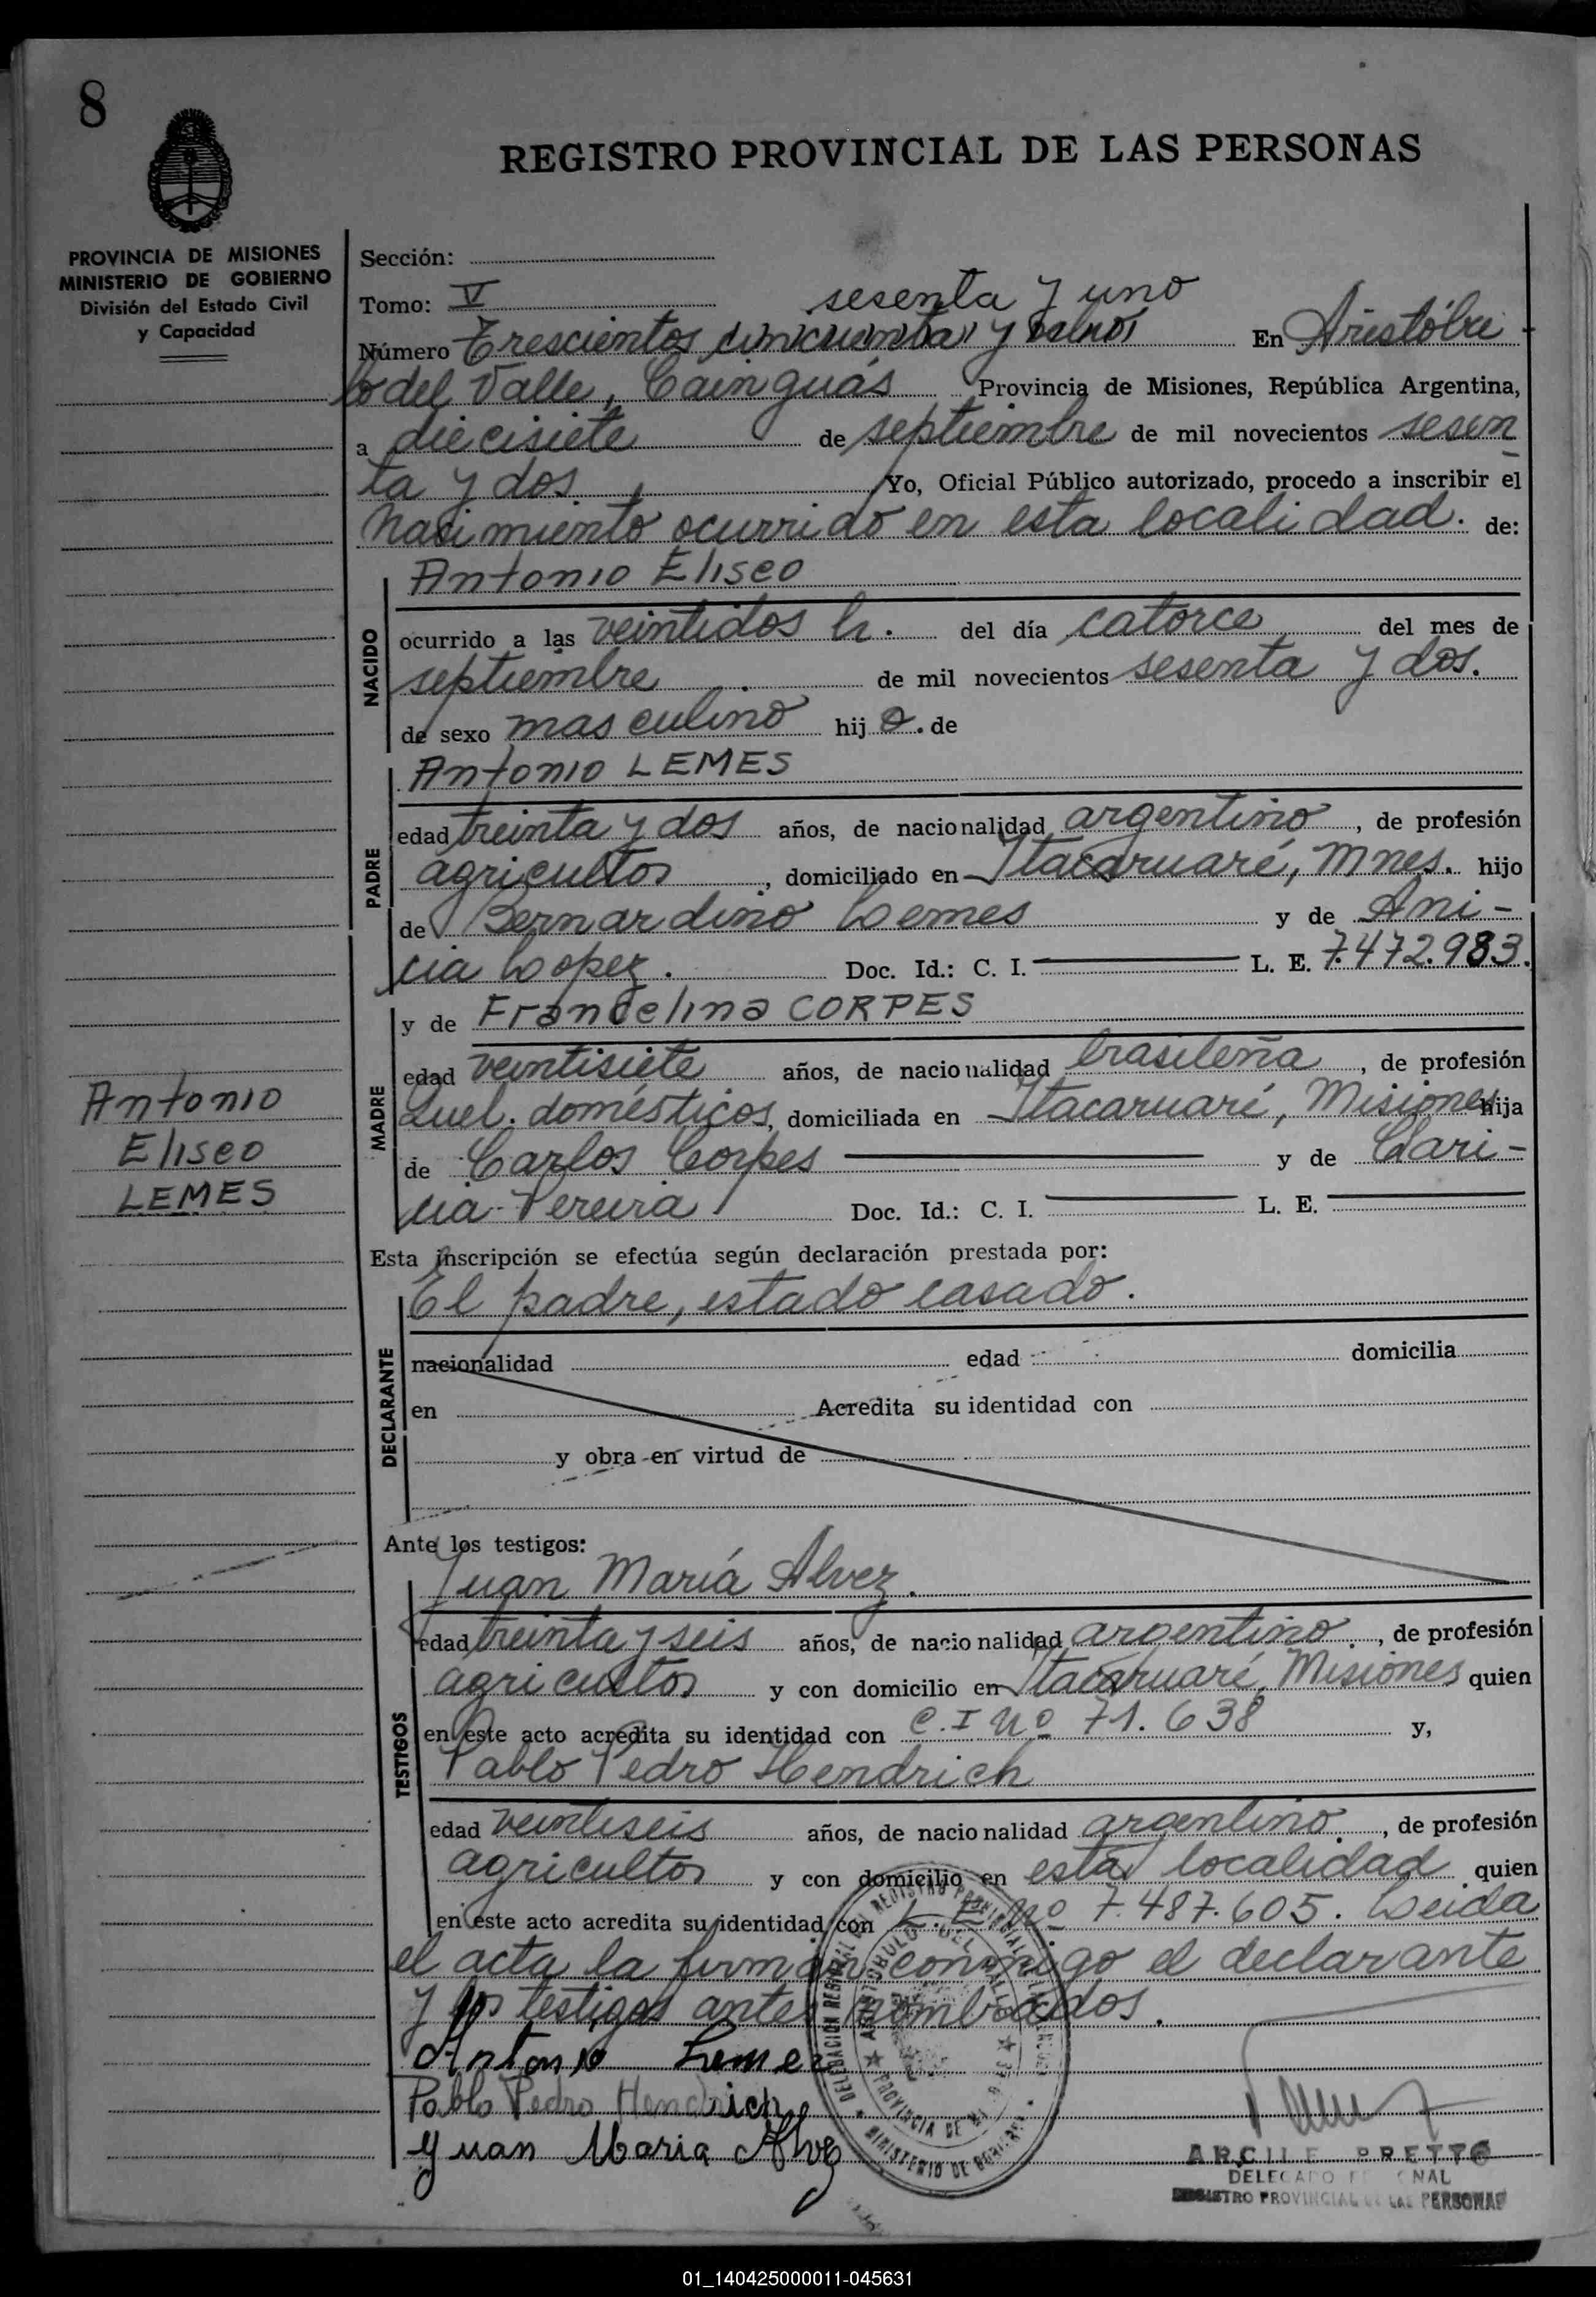 8
REGISTRO PROVINCIAL DE LAS PERSONAS
PROVINCIA DE MISIONES
MINISTERIO DE GOBIERNO
División del Estado Civil
y Capacidad
Sección:
Tomo: V
sesenta y uno
Número Trescientos cincuenta y En Aristóbu
lo del Valle, Cainguás Provincia de Misiones, República Argentina,
a diecisiete de septiembre de mil novecientos sesen
ta y dos, Yo, Oficial Público autorizado, procedo a inscribir el
Nacimiento ocurrido en esta localidad. de:
Antonio Eliseo
NACIDO
ocurrido a las veintidos h. del día catorce del mes de
septiembre de mil novecientos sesenta y dos.
de sexo masculino hijo. de
Antonio LEMES
PADRE
edad treinta y dos años, de nacionalidad argentino, de profesión
agricultor, domiciliado en Itacaruaré, Mnes. hijo
de Bernardino Lemes y de Ani-
cia Lopez. Doc. Id.: C. I. L. E. 7.472.983.
y de Francelina CORPES
MADRE
edad veintisiete años, de nacionalidad brasileña, de profesión
Quel. domésticos, domiciliada en Itacaruaré, Misiones hija
de Carlos Corpes y de Clari-
cia Pereira Doc. Id.: C. I. L. E.
Antonio
Eliseo
LEMES
Esta inscripción se efectúa según declaración prestada por:
El padre, estado casado.
DECLARANTE
nacionalidad edad domicilia
en Acredita su identidad con
y obra en virtud de
Ante los testigos:
Juan María Alvez.
TESTIGOS
edad treinta y seis años, de nacionalidad argentino, de profesión
agricultor y con domicilio en Itacaruaré, Misiones quien
en este acto acredita su identidad con C.I Nº 71.638 y,
Pablo Pedro Hendrich
edad veintiseis años, de nacionalidad argentino, de profesión
agricultor y con domicilio en esta localidad quien
en este acto acredita su identidad con L.E Nº 7.487.605. Leida
el acta la firman conmigo el declarante
y los testigos antes nombrados.
Antonio Lemes
Pablo Pedro Hendrich
Yuan Maria Alvez
PROVINCIA DE
MINISTERIO DE
PRETTO
DELEGADO
REGISTRO PROVINCIAL DE LAS PERSONAS
01_140425000011-045631